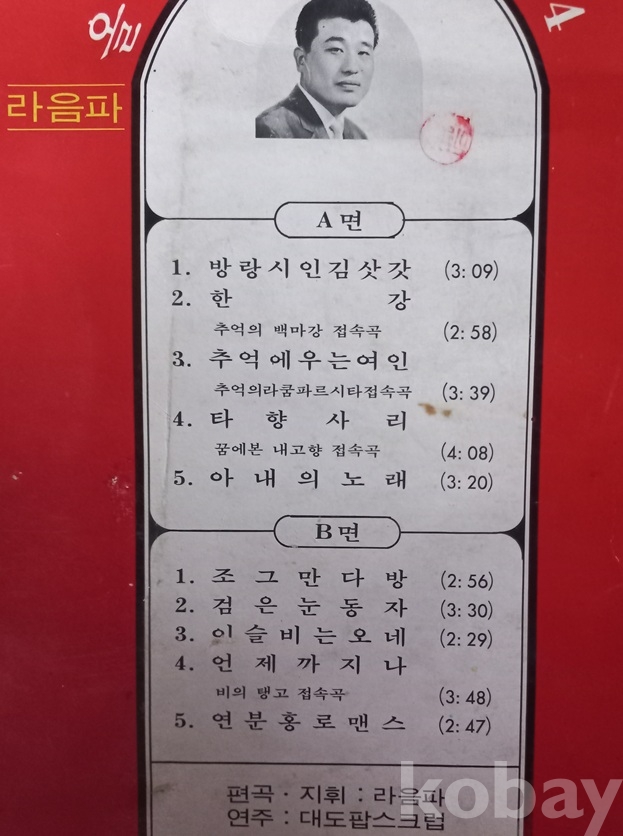 올
4
라음파
A 면
1. 방랑시인김삿갓 (3: 09)
2. 한 강
추억의 백마강 접속곡 (2: 58)
3. 추억에우는여인
추억의라쿰파르시타접속곡 (3: 39)
4. 타 향 사 리
꿈에본 내고향 접속곡 (4: 08)
5. 아 내 의 노 래 (3: 20)
B 면
1. 조 그 만 다 방 (2: 56)
2. 검 은 눈 동 자 (3: 30)
3. 이 슬 비 는 오 네 (2: 29)
4. 언 제 까 지 나
비의 탱고 접속곡 (3: 48)
5. 연 분 홍 로 맨 스 (2: 47)
편곡 · 지휘 : 라음파
연주 : 대도팝스크럽
kobay